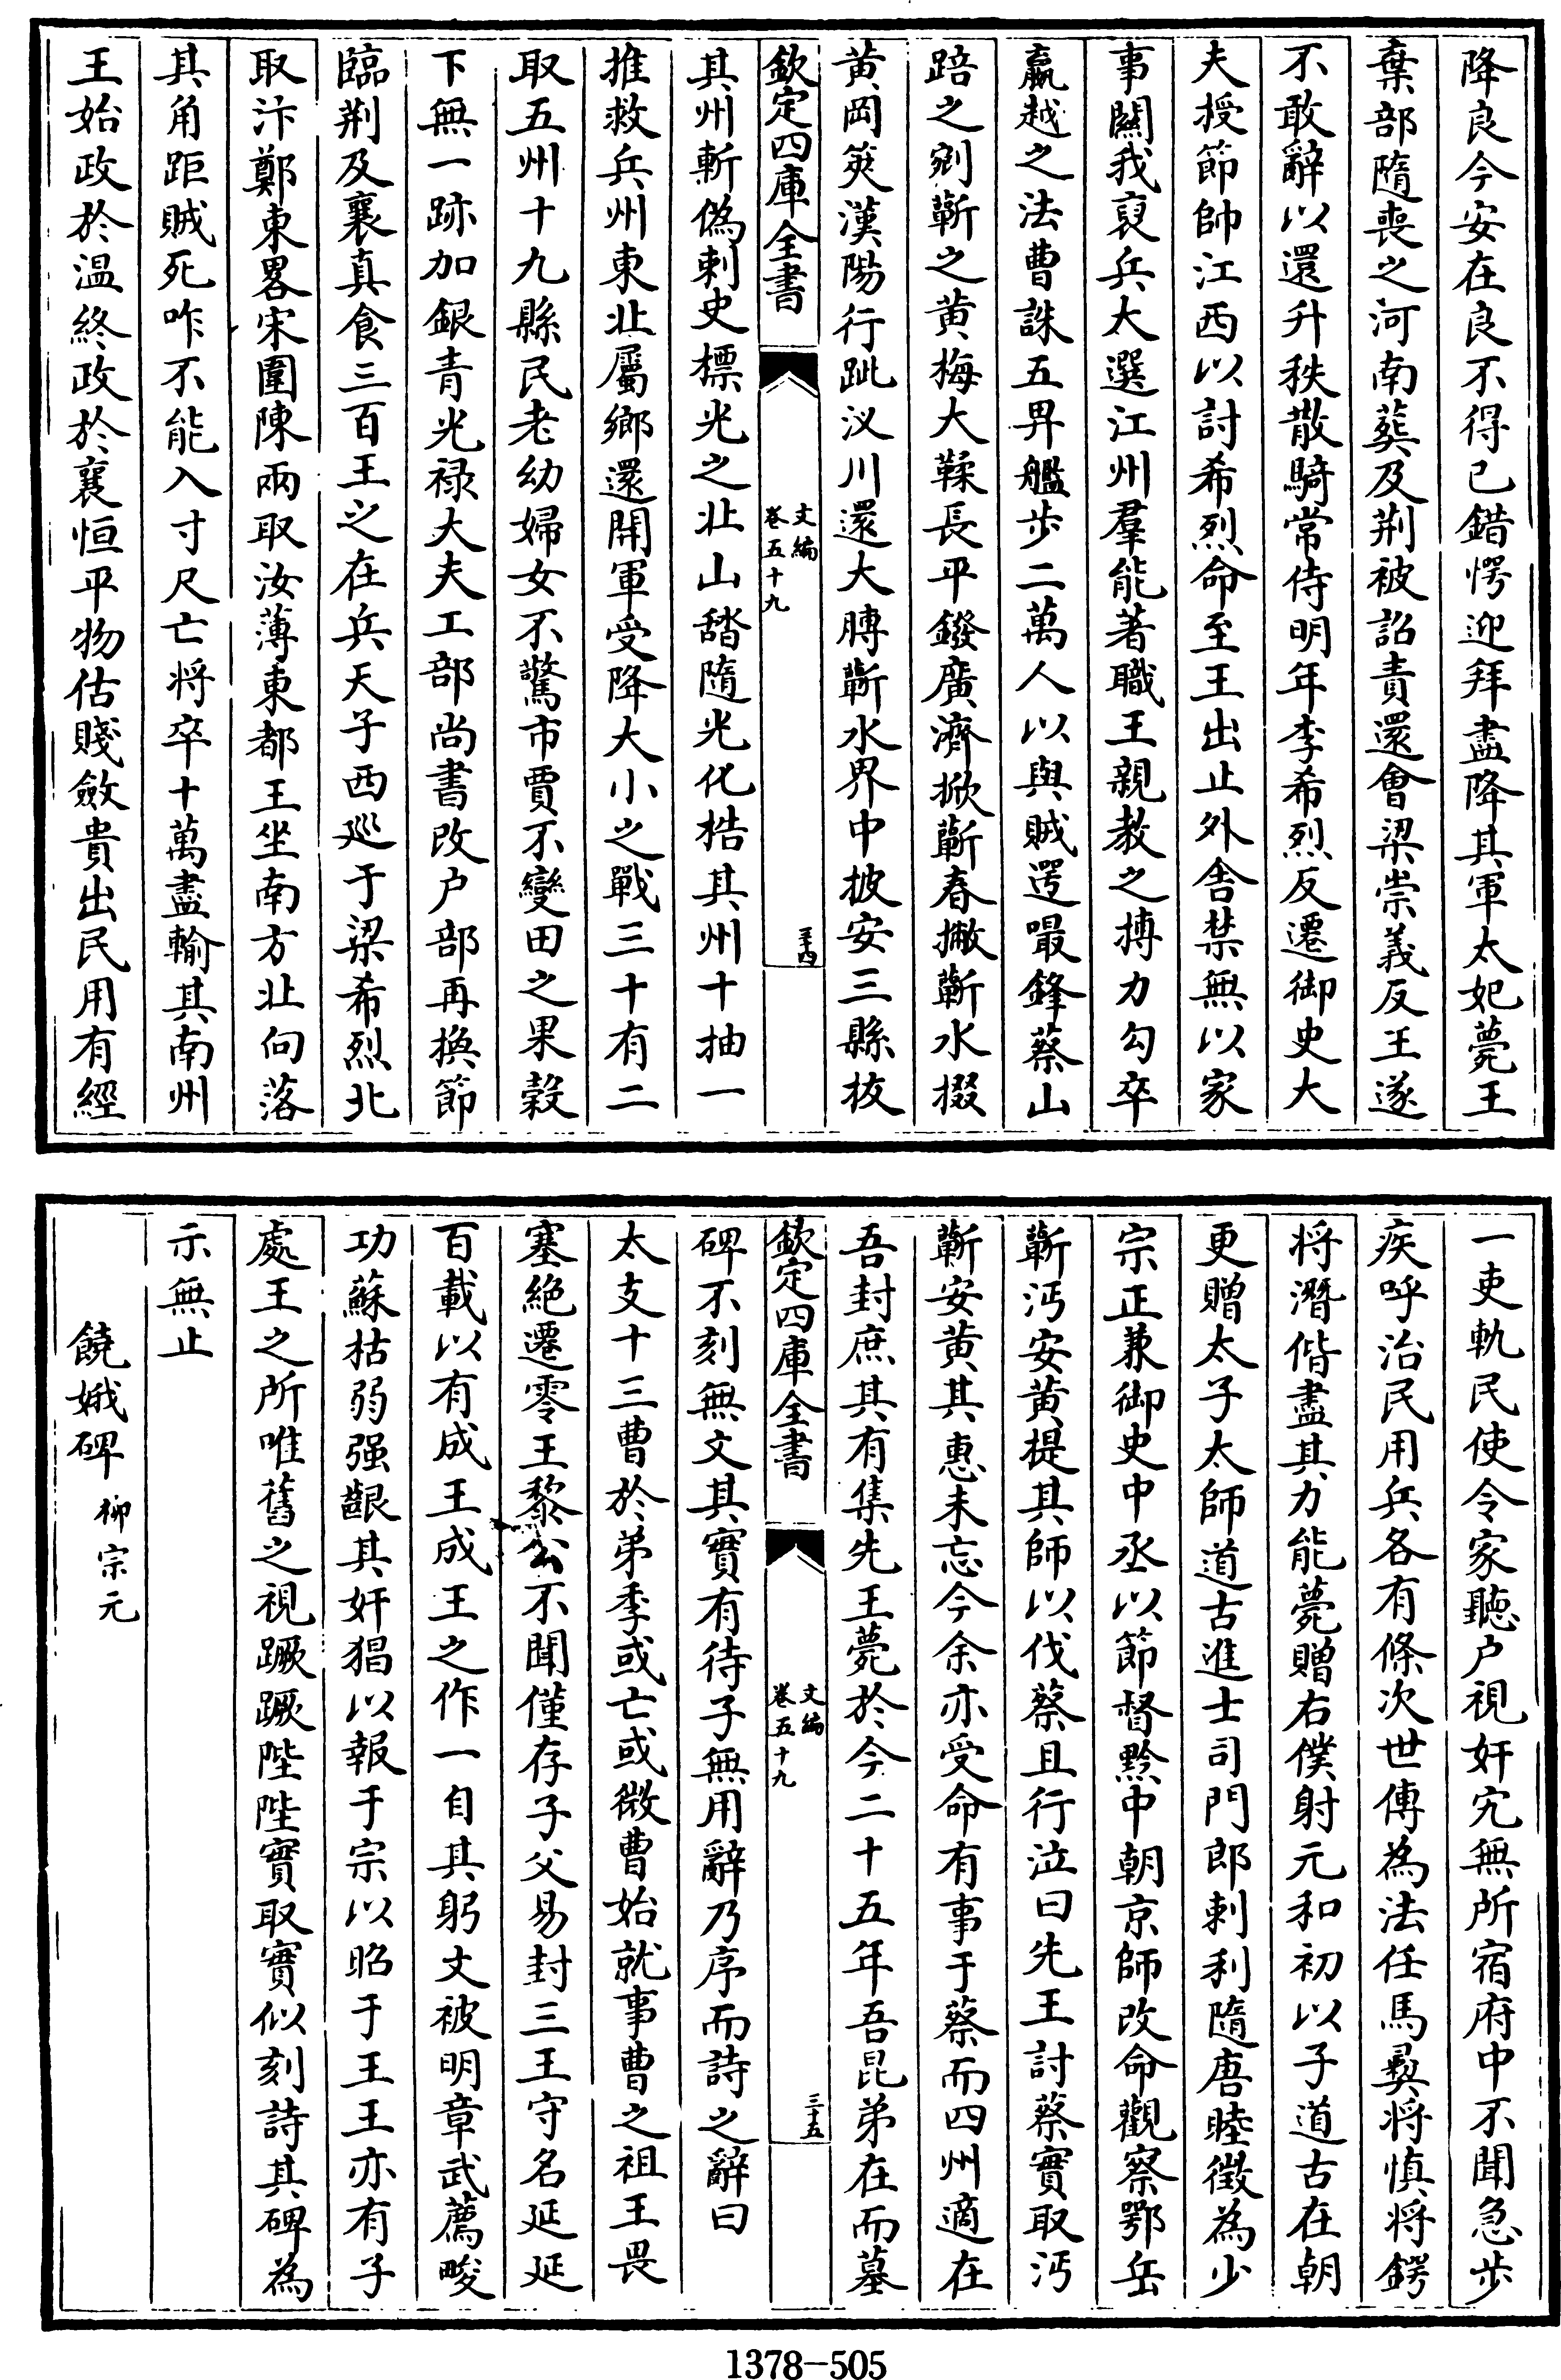 降良今安在良不得已錯愕迎拜盡降其軍太妃薨王
棄部隨喪之河南葬及荆被詔責還會梁崇義反王遂
不敢辭以還升秩散騎常侍明年李希烈反遷御史大
夫授節帥江西以討希烈命至王出止外舍禁無以家
事闗我裒兵大選江州羣能著職王親教之搏力勾卒
嬴越之法曹誅五畀艦步二萬人以與賊遌嘬鋒蔡山
踣之剜蘄之黄梅大鞣長平鏺廣濟掀蘄春撇蘄水掇
黄岡筴漢陽行跐汊川還大膊蘄水界中披安三縣拔
欽定四庫全書
文編
卷五十九
三十四
其州斬偽剌史標光之北山䶀隨光化梏其州十抽一
推救兵州東北屬鄉還開軍受降大小之戰三十有二
取五州十九縣民老幼婦女不驚市賈不變田之果穀
下無一跡加銀青光禄大夫工部尚書改户部再換節
臨荆及襄真食三百王之在兵天子西廵于梁希烈北
取汴鄭東畧宋圍陳兩取汝薄東都王坐南方北向落
其角距賊死咋不能入寸尺亡将卒十萬盡輸其南州
王始政於温終政於襄恒平物估賤斂貴出民用有經
一吏軌民使令家聽户視奸宄無所宿府中不聞急步
疾呼治民用兵各有條次世傳為法任馬彛将慎将鍔
将潛偕盡其力能薨贈右僕射元和初以子道古在朝
更贈太子太師道古進士司門郎剌利隨唐睦徵為少
宗正兼御史中丞以節督黔中朝京師改命觀察鄂岳
蘄沔安黄提其師以伐蔡且行泣曰先王討蔡實取沔
蘄安黄其惠未忘今余亦受命有事于蔡而四州適在
吾封庶其有集先王薨於今二十五年吾昆弟在而墓
欽定四庫全書
文編
卷五十九
三十五
碑不刻無文其實有待子無用辭乃序而詩之辭曰
太支十三曹於弟季或亡或微曹始就事曹之祖王畏
塞絶遷零王黎公不聞僅存子父易封三王守名延延
百載以有成王成王之作一自其躬文被明章武薦畯
功蘇枯弱强齦其奸猖以報于宗以昭于王王亦有子
處王之所唯舊之視蹶蹶陛陛實取實似刻詩其碑為
示無止
饒娥碑 柳宗元
1378-505